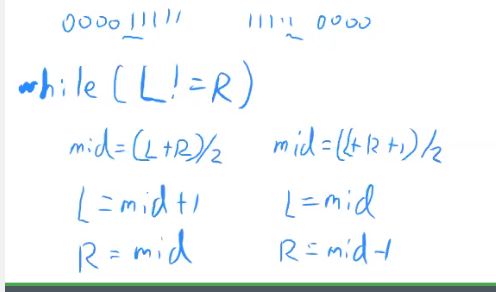 000011111 11111 0000
while(L!=R)
mid=(L+R)/2 mid=(L+R+1)/2
L=mid+1 L=mid
R=mid R=mid-1